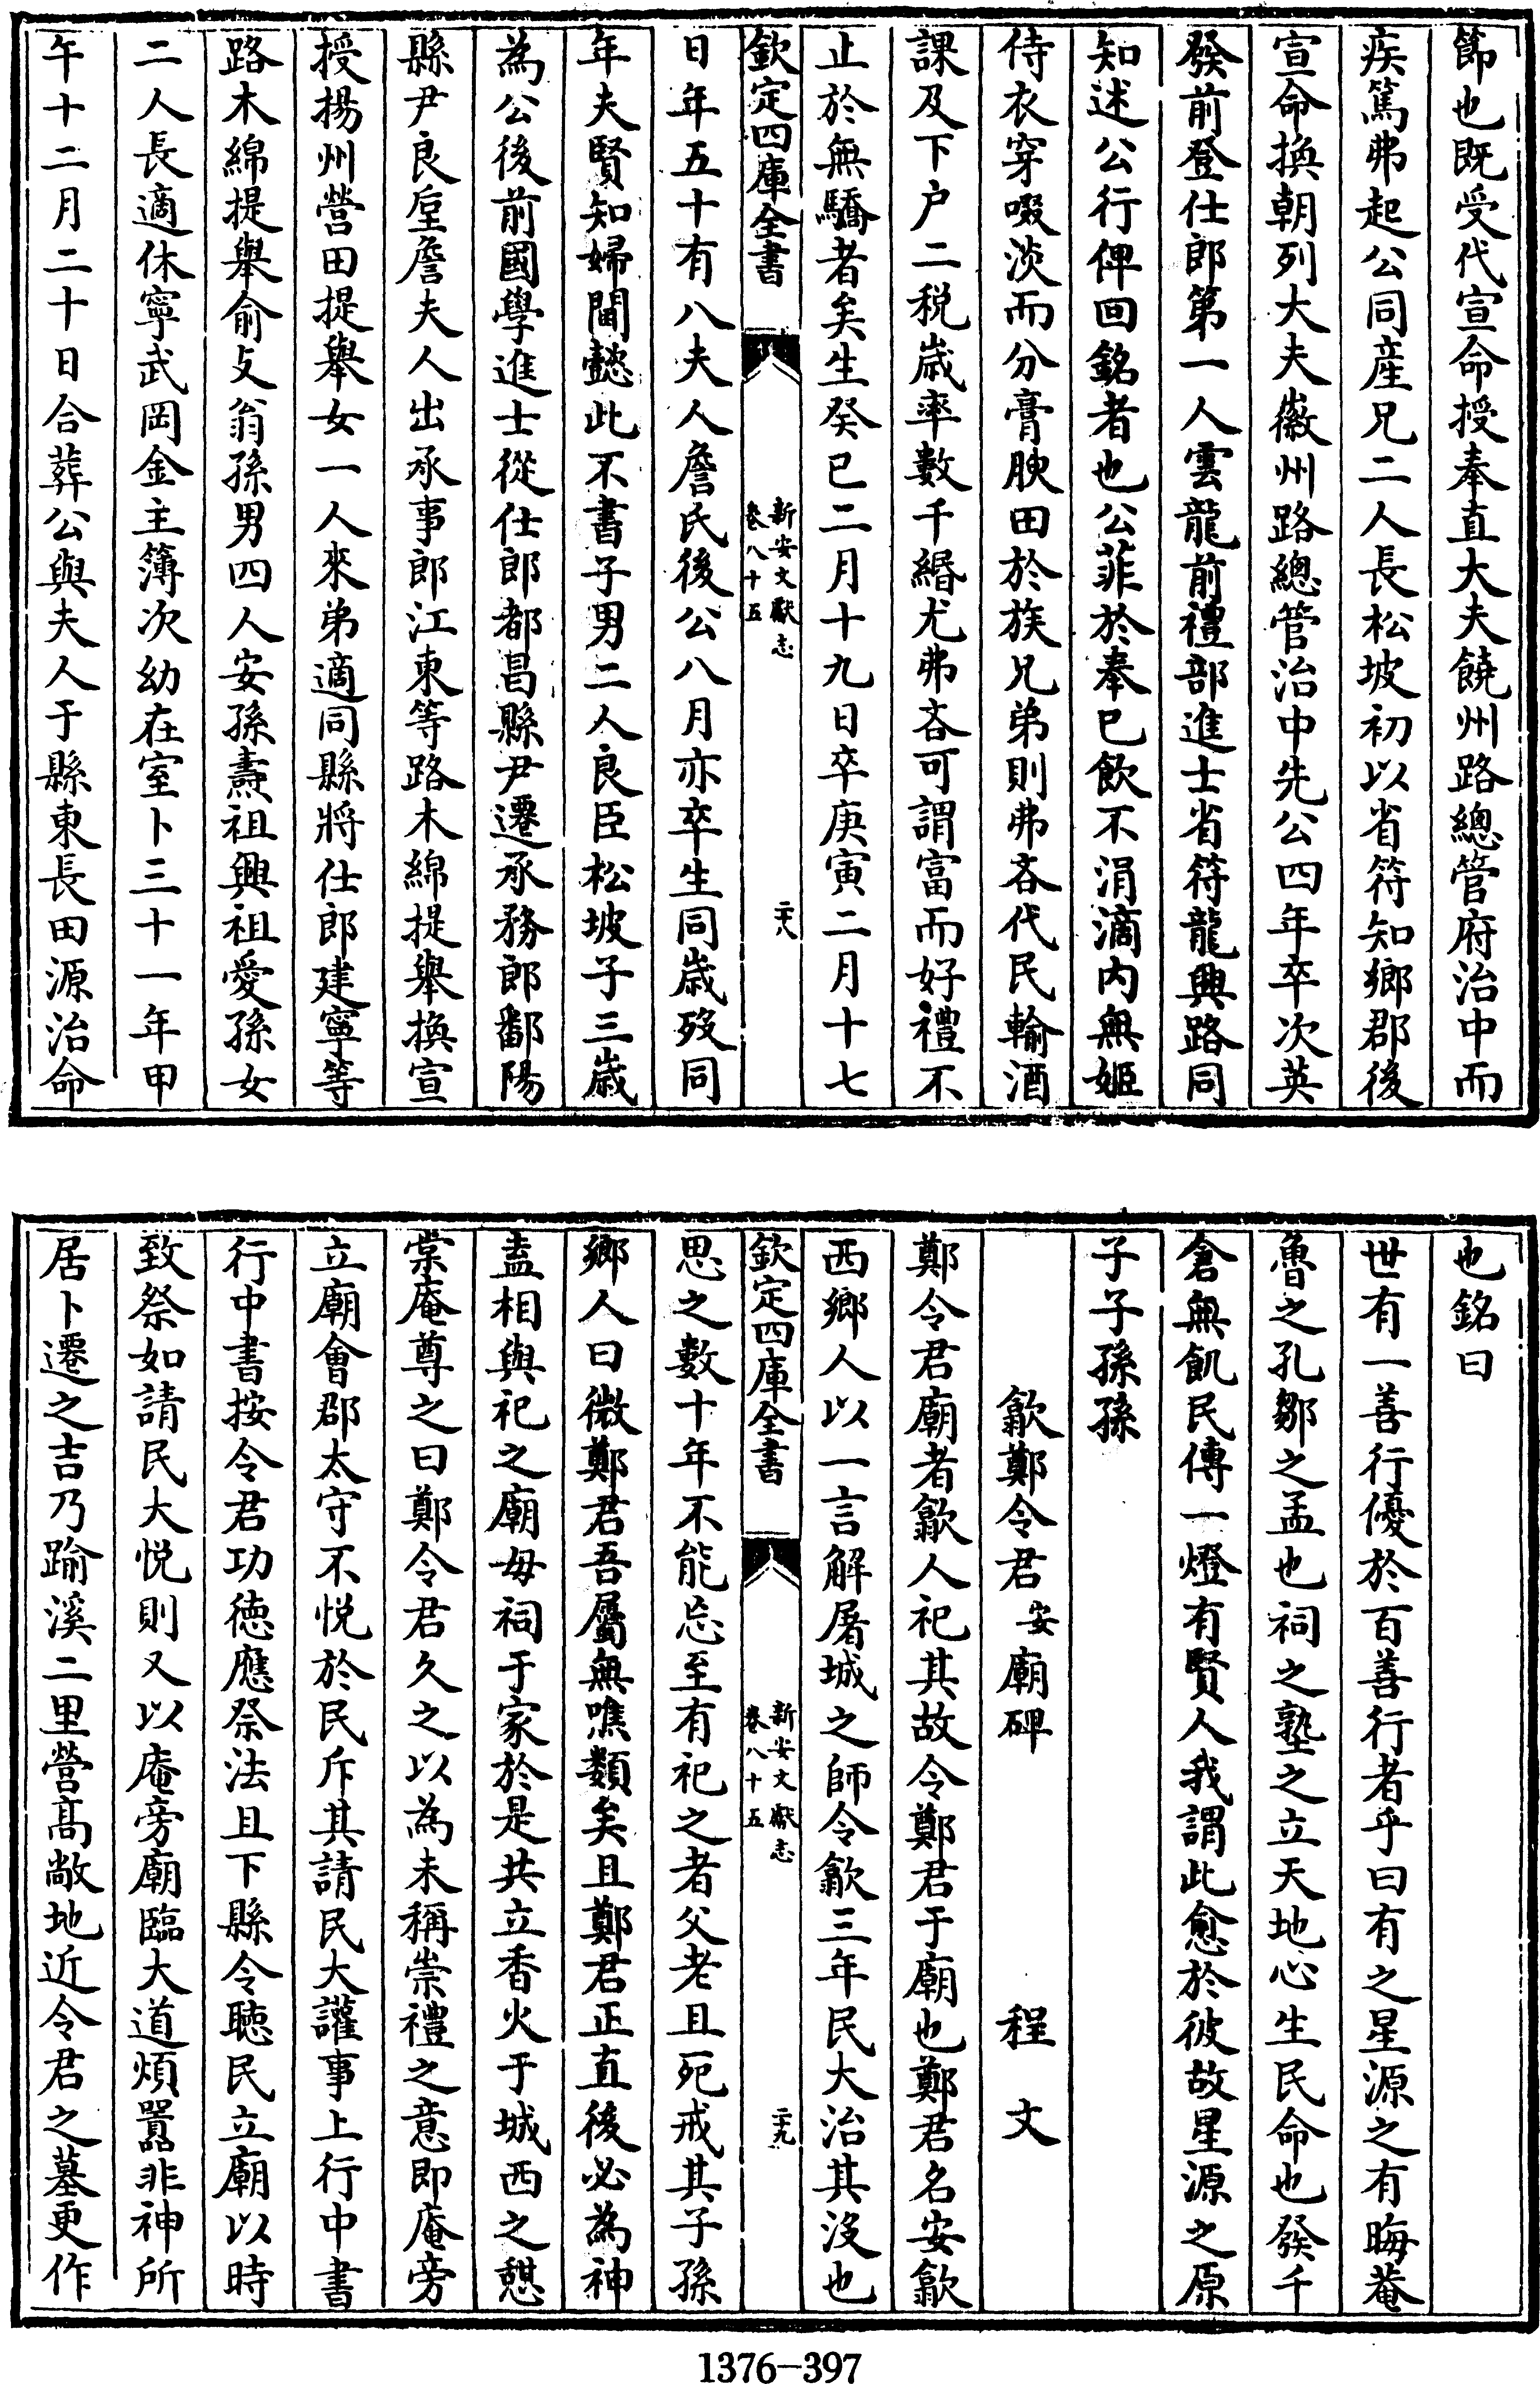 節也既受代宣命授奉直大夫饒州路總管府治中而
疾篤弗起公同産兄二人長松坡初以省符知鄉郡後
宣命換朝列大夫徽州路總管治中先公四年卒次英
發前登仕郎第一人雲龍前禮部進士省符龍興路同
知述公行俾回銘者也公菲於奉已飲不涓滴内無姬
侍衣穿啜淡而分膏腴田於族兄弟則弗吝代民輸酒
課及下户二税歲率數千緡尤弗吝可謂富而好禮不
止於無驕者矣生癸已二月十九日卒庚寅二月十七
欽定四庫全書 新安文獻志 卷八十五 二十八
日年五十有八夫人詹氏後公八月亦卒生同歲歿同
年夫賢知婦閫懿此不書子男二人良臣松坡子三歲
為公後前國學進士從仕郎都昌縣尹遷承務郎鄱陽
縣尹良垕詹夫人出承事郎江東等路木綿提舉換宣
授揚州營田提舉女一人來弟適同縣將仕郎建寧等
路木綿提舉俞攴翁孫男四人安孫燾祖興祖愛孫女
二人長適休寧武岡金主簿次幼在室卜三十一年甲
午十二月二十日合葬公與夫人于縣東長田源治命
也銘曰
世有一善行優於百善行者乎曰有之星源之有晦菴
魯之孔鄒之孟也祠之塾之立天地心生民命也發千
倉無飢民傳一燈有賢人我謂此愈於彼故星源之原
子子孫孫
歙鄭令君安廟碑 程文
鄭令君廟者歙人祀其故令鄭君于廟也鄭君名安歙
西鄉人以一言解屠城之師令歙三年民大治其沒也
欽定四庫全書 新安文獻志 卷八十五 二十九
思之數十年不能忘至有祀之者父老且死戒其子孫
鄉人曰微鄭君吾屬無噍類矣且鄭君正直後必為神
盍相與祀之廟毋祠于家於是共立香火于城西之憇
棠庵尊之曰鄭令君久之以為未稱崇禮之意即庵旁
立廟會郡太守不悦於民斥其請民大讙事上行中書
行中書按令君功徳應祭法且下縣令聴民立廟以時
致祭如請民大悦則又以庵旁廟臨大道煩囂非神所
居卜遷之吉乃踰溪二里營髙敞地近令君之墓更作
1376-397